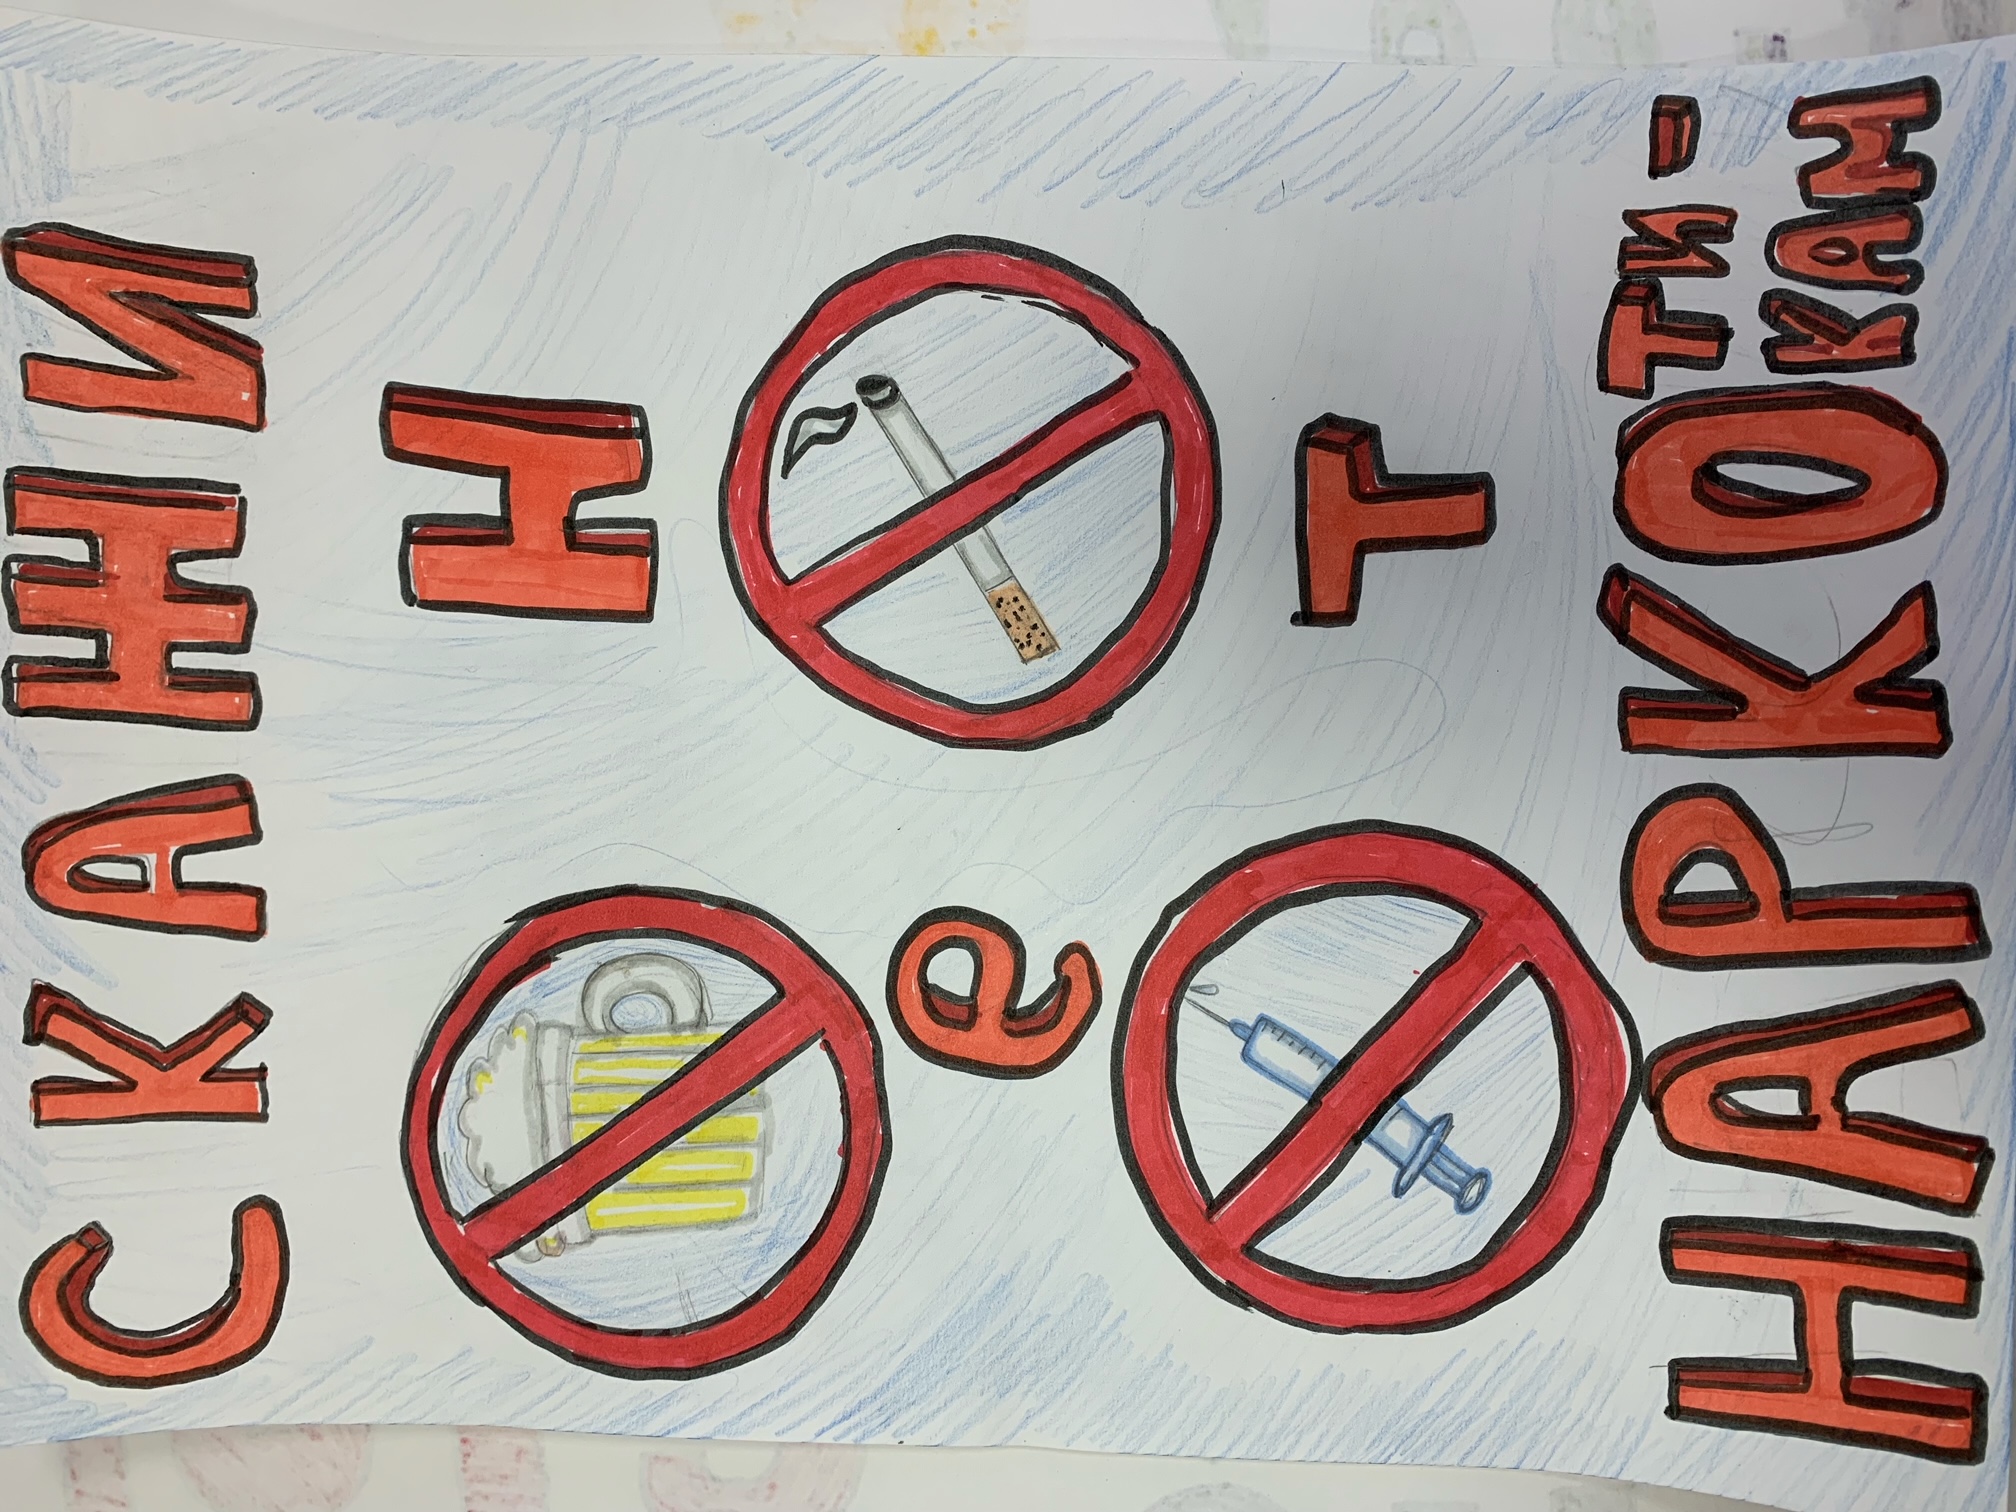 СКАЖИ
Н
е
Т
НАРКОТИ-
КАМ